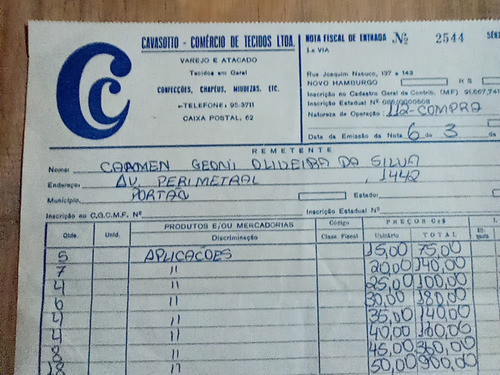 CAVASOTTO - COMÉRCIO DE TECIDOS LTDA.
VAREJO E ATACADO
Tecidos em Geral
CONFECÇÕES, CHAPÉUS, MIUDEZAS, ETC.
TELEFONE: 95-3711
CAIXA POSTAL, 62
Cc
NOTA FISCAL DE ENTRADA Nº 2544 SÉRI
1a VIA
Rua Joaquim Nabuco, 137 e 143
NOVO HAMBURGO RS
Inscrição no Cadastro Geral de Contrib. (MF) 91.667,741
Inscrição Estadual Nº
Natureza de Operação: 112-COMPRA
Data da Emissão da Nota 6 de 3 de
REMETENTE
Nome: CARMEN GEONI OLIVEIRA DA SILVA
Endereço: AV. PERIMETRAL, 1442
Município: PORTÃO Estado:
Inscrição no C.G.C.M.F. Nº Inscrição Estadual Nº
Qtde. Unid. PRODUTOS E/OU MERCADORIAS Código PREÇOS Cr$
Discriminação Class. Fiscal Unitário TOTAL
5 APLICAÇÕES 15,00 75,00
7 " 20,00 140,00
4 " 25,00 100,00
6 " 30,00 180,00
4 " 35,00 140,00
4 " 40,00 160,00
8 " 45,00 360,00
18 " 50,00 900,00